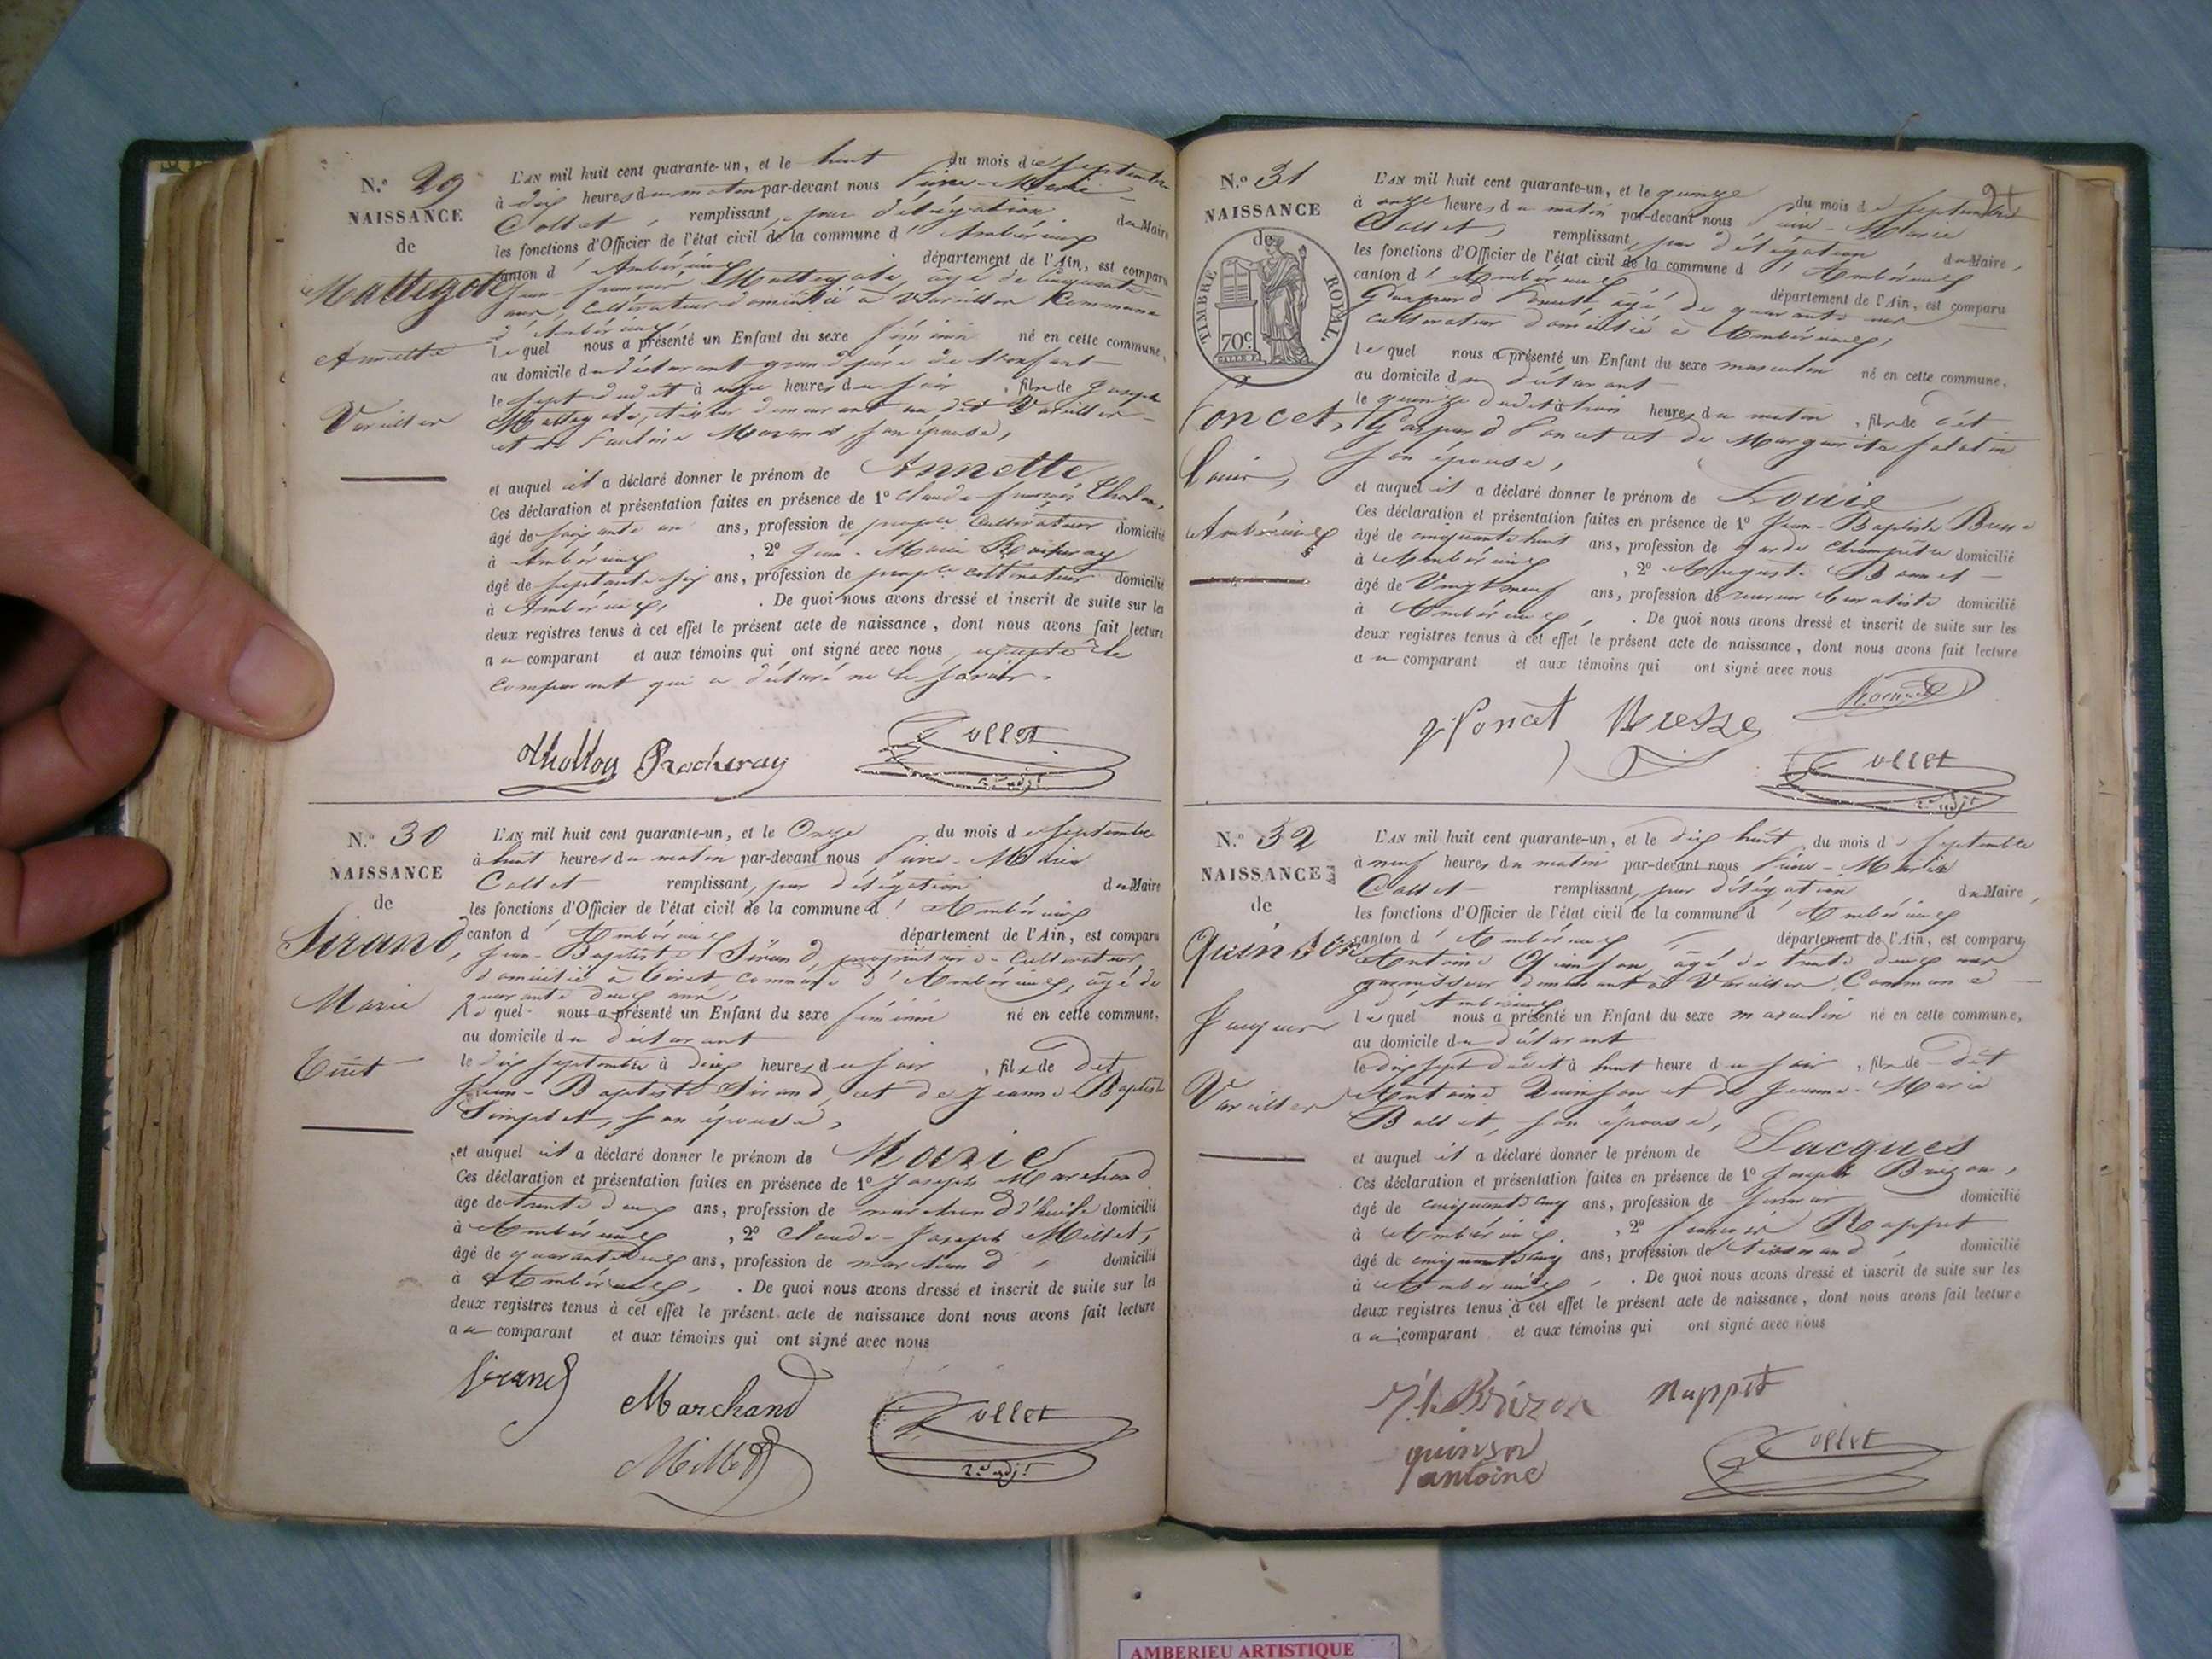 N.o 29
NAISSANCE
de
Mattegat
Annette
Vareilles
L'AN mil huit cent quarante-un, et le huit du mois de Septembre
à dix heures du matin par-devant nous Pierre-Marie
Collet, remplissant, par délégation du Maire
les fonctions d'Officier de l'état civil de la commune d'Ambérieux
canton d'Ambérieux département de l'Ain, est comparu
Jean-François âgé de cinquante
ans, cultivateur domicilié à Vareilles Commune
d'Ambérieux
lequel nous a présenté un Enfant du sexe féminin né en cette commune,
au domicile du déclarant grand père de l'enfant
le sept dudit à onze heures du soir, fille de Joseph
demeurant au dit Vareilles
et de Pauline son épouse,
et auquel il a déclaré donner le prénom de Annette
Ces déclaration et présentation faites en présence de 1o Claude-François Thollon,
âgé de soixante un ans, profession de propre cultivateur domicilié
à Ambérieux, 2o Jean-Marie Rocheray
âgé de septante six ans, profession de propre cultivateur domicilié
à Ambérieux. De quoi nous avons dressé et inscrit de suite sur les
deux registres tenus à cet effet le présent acte de naissance, dont nous avons fait lecture
au comparant et aux témoins qui ont signé avec nous excepté le
comparant qui a déclaré ne le savoir.
Thollon Rocheray Collet
2e adjt
N.o 30
NAISSANCE
de
Sirand,
Marie
Tiret
L'AN mil huit cent quarante-un, et le Onze du mois de Septembre
à huit heures du matin par-devant nous Pierre-Marie
Collet remplissant, par délégation du Maire
les fonctions d'Officier de l'état civil de la commune d'Ambérieux
canton d'Ambérieux département de l'Ain, est comparu
Jean-Baptiste Sirand, propriétaire-Cultivateur,
domicilié à Tiret, commune d'Ambérieux, âgé de
quarante deux ans,
lequel nous a présenté un Enfant du sexe féminin né en cette commune,
au domicile du déclarant
le dix septembre à dix heures du soir, fille de dit
Jean-Baptiste Sirand et de Jeanne Baptiste
Simplet, son épouse,
et auquel il a déclaré donner le prénom de Marie
Ces déclaration et présentation faites en présence de 1o Joseph Marchand
âgé de trente deux ans, profession de marchand d'huile domicilié
à Ambérieux, 2o Claude-Joseph Millet,
âgé de quarante deux ans, profession de marchand, domicilié
à Ambérieux. De quoi nous avons dressé et inscrit de suite sur les
deux registres tenus à cet effet le présent acte de naissance dont nous avons fait lecture
au comparant et aux témoins qui ont signé avec nous
Sirand Marchand Collet
Millet 2e adjt
21
N.o 31
NAISSANCE
de
TIMBRE ROYAL
70c
Poncet,
Louis,
Ambérieux
L'AN mil huit cent quarante-un, et le quinze du mois de Septembre
à onze heures du matin par-devant nous Pierre-Marie
Collet, remplissant, par délégation du Maire,
les fonctions d'Officier de l'état civil de la commune d'Ambérieux
canton d'Ambérieux département de l'Ain, est comparu
Gaspard Poncet âgé de quarante ans
cultivateur domicilié à Ambérieux,
lequel nous a présenté un Enfant du sexe masculin né en cette commune,
au domicile du déclarant
le quinze dudit à trois heures du matin, fils de dit
Gaspard Poncet et de Marguerite
son épouse,
et auquel il a déclaré donner le prénom de Louis
Ces déclaration et présentation faites en présence de 1o Jean-Baptiste Bresse
âgé de cinquante huit ans, profession de garde champêtre domicilié
à Ambérieux, 2o Auguste Bonnet
âgé de Vingt neuf ans, profession de domicilié
à Ambérieux. De quoi nous avons dressé et inscrit de suite sur les
deux registres tenus à cet effet le présent acte de naissance, dont nous avons fait lecture
au comparant et aux témoins qui ont signé avec nous
g Poncet Bresse Bonnet
Collet
2e adjt
N.o 32
NAISSANCE
de
Quinson
Jacques
Vareilles
L'AN mil huit cent quarante-un, et le dix huit du mois de Septembre
à neuf heures du matin par-devant nous Pierre-Marie
Collet remplissant, par délégation du Maire,
les fonctions d'Officier de l'état civil de la commune d'Ambérieux
canton d'Ambérieux département de l'Ain, est comparu
Antoine Quinson, âgé de trente deux ans
demeurant à Vareilles, Commune
d'Ambérieux
lequel nous a présenté un Enfant du sexe masculin né en cette commune,
au domicile du déclarant
le dix sept dudit à huit heure du soir, fils de dit
Antoine Quinson et de Jeanne-Marie
Bollet, son épouse,
et auquel il a déclaré donner le prénom de Jacques
Ces déclaration et présentation faites en présence de 1o Joseph Brizon,
âgé de cinquante cinq ans, profession de domicilié
à Ambérieux. 2o François Rappet
âgé de cinquante cinq ans, profession de Tisserand, domicilié
à Ambérieux. De quoi nous avons dressé et inscrit de suite sur les
deux registres tenus à cet effet le présent acte de naissance, dont nous avons fait lecture
au comparant et aux témoins qui ont signé avec nous
Brizon Rappet
quinson
antoine
Collet
AMBERIEU ARTISTIQUE